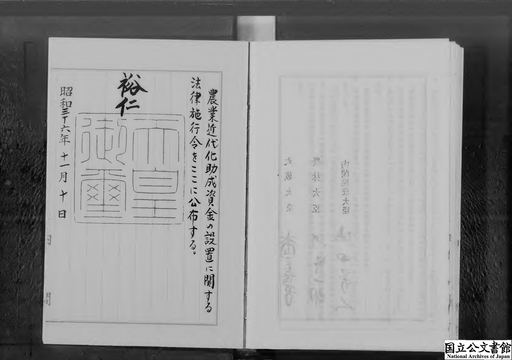 農業近代化助成資金の設置に関する
法律施行令をここに公布する。
裕仁
天皇
御璽
昭和三十六年十一月十日
内閣総理大臣
農林大臣
大蔵大臣
国立公文書館
National Archives of Japan